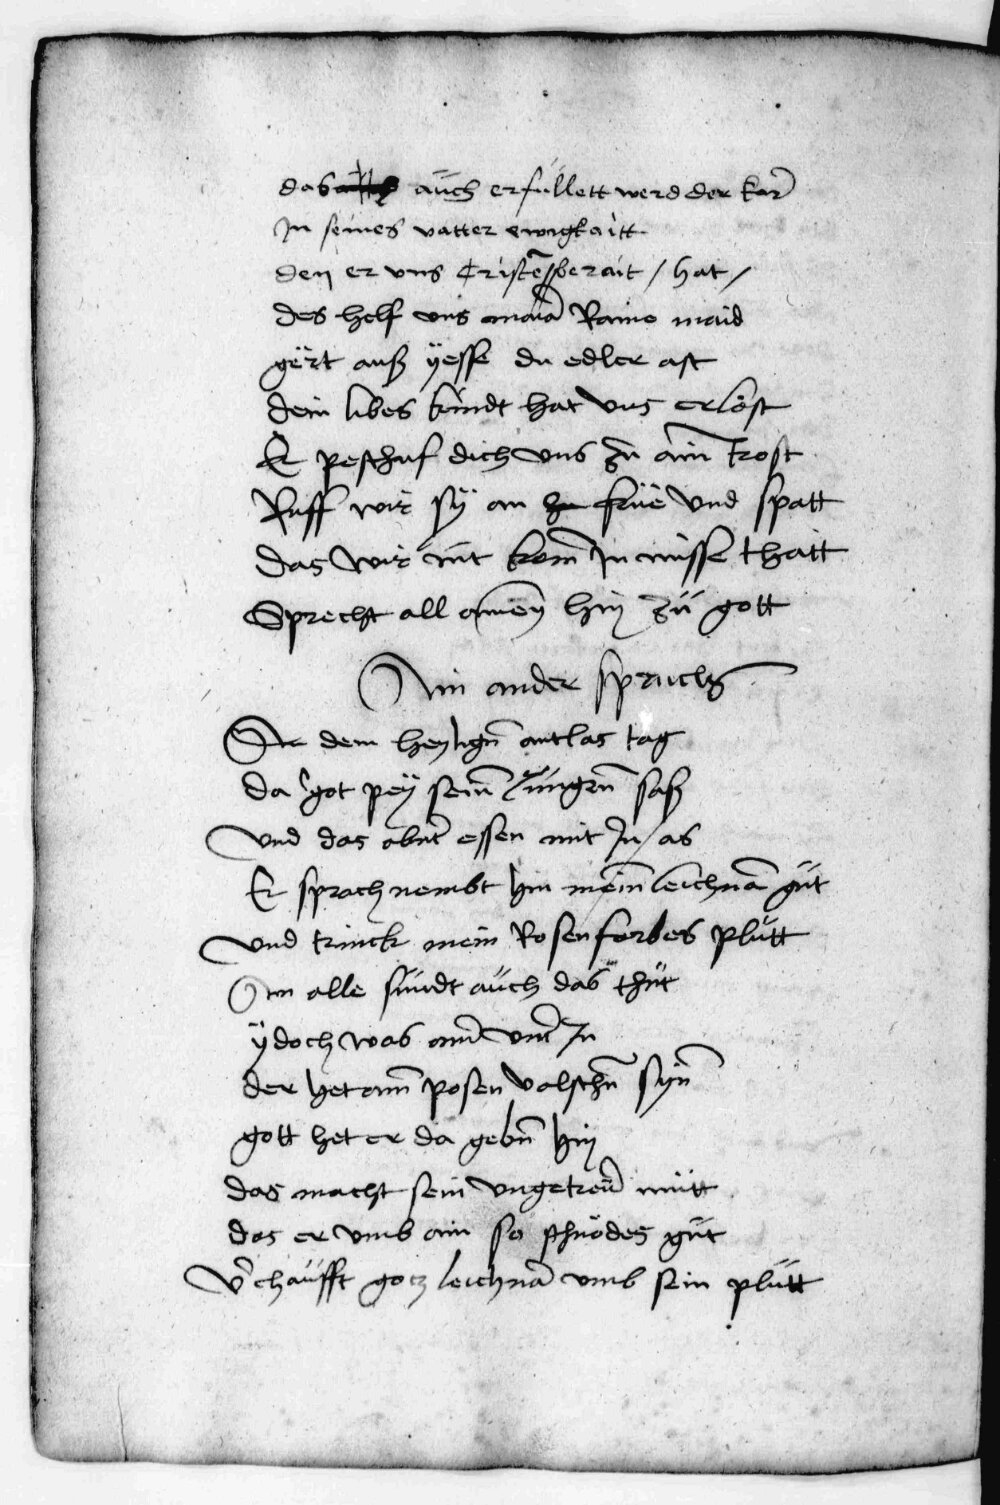 das auch erfüllett werd der kor
In seines vatter ewigkaitt
den er uns Cristen berait / hat /
des helf uns maria Raine maid
gert auß yesse du edler ast
dein libes kindt hat uns erlöst
Er peschuf dich uns zu aim trost
Ruff wir sy an frue und spatt
das wir nit kom In misse thatt
Sprecht all amen hin zu gott
Ain ander spruch
An dem heylign antlas tag
da got pey sein Jüngrn saß
und das abnt essen mit In as
Er sprach nembt hin mein leichnam gut
und trinck mein Rosenforbes plutt
An alle sündt auch das thut
ydoch was ainr untr In
der het ain posen valschn syn
gott het er da gebn hin
das macht sein ungetreur mutt
das er umb ain so schnödes gut
Vrchaufft gotz leichnam umb sein plutt